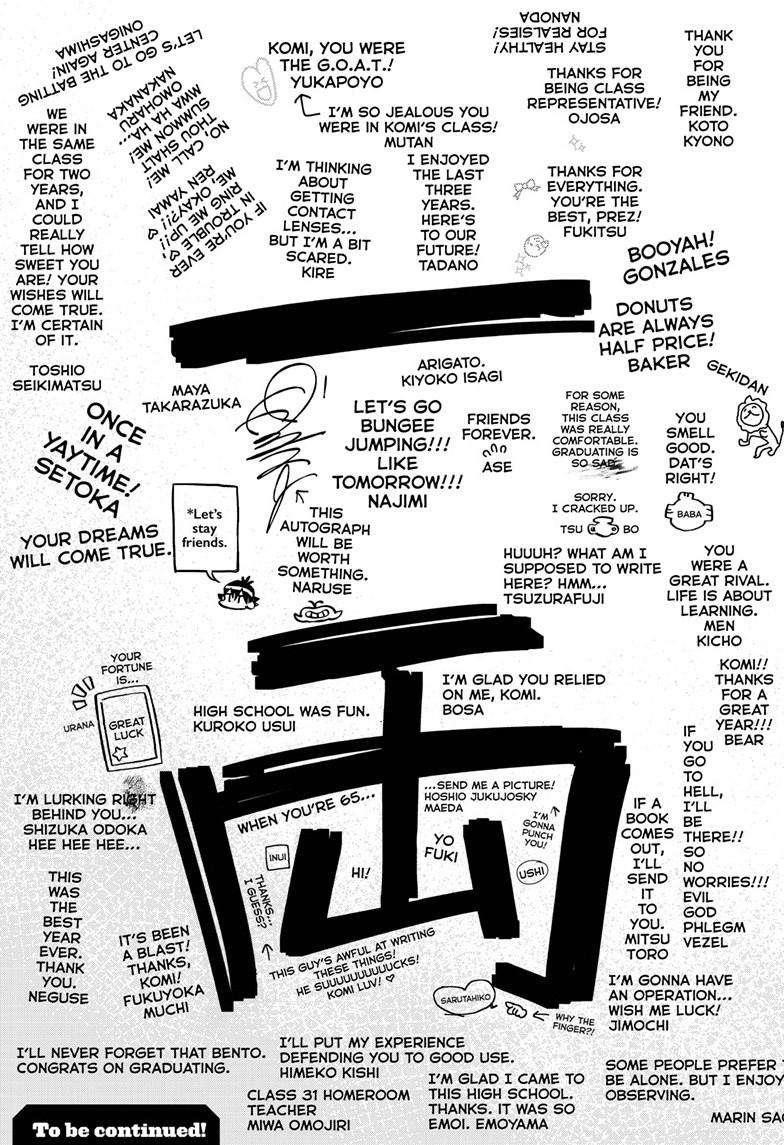 LET'S GO TO THE BATTING
CENTER AGAIN!
ONIGASHIMA
NO, CALL ME!
THOU SHALT
SUMMON ME!
MWA HA HA...
OMOHARU
NAKANAKA
KOMI, YOU WERE
THE G.O.A.T.!
YUKAPOYO
I'M SO JEALOUS YOU
WERE IN KOMI'S CLASS!
MUTAN
STAY HEALTHY!
FOR REALSIES!
NANODA
THANKS FOR
BEING CLASS
REPRESENTATIVE!
OJOSA
THANK
YOU
FOR
BEING
MY
FRIEND.
KOTO
KYONO
WE
WERE IN
THE SAME
CLASS
FOR TWO
YEARS,
AND I
COULD
REALLY
TELL HOW
SWEET YOU
ARE! YOUR
WISHES WILL
COME TRUE.
I'M CERTAIN
OF IT.
TOSHIO
SEIKIMATSU
IF YOU'RE EVER
IN TROUBLE,
RING ME UP!! ♡
ME, OKAY?!! ♡
REN YAMAI
I'M THINKING
ABOUT
GETTING
CONTACT
LENSES...
BUT I'M A BIT
SCARED.
KIRE
I ENJOYED
THE LAST
THREE
YEARS.
HERE'S
TO OUR
FUTURE!
TADANO
THANKS FOR
EVERYTHING.
YOU'RE THE
BEST, PREZ!
FUKITSU
BOOYAH!
GONZALES
DONUTS
ARE ALWAYS
HALF PRICE!
BAKER
GEKIDAN
MAYA
TAKARAZUKA
ARIGATO.
KIYOKO ISAGI
ONCE
IN A
YAYTIME!
SETOKA
LET'S GO
BUNGEE
JUMPING!!!
LIKE
TOMORROW!!!
NAJIMI
FRIENDS
FOREVER.
ASE
FOR SOME
REASON,
THIS CLASS
WAS REALLY
COMFORTABLE.
GRADUATING IS
SO SAD.
SORRY.
I CRACKED UP.
TSU BO
YOU
SMELL
GOOD.
DAT'S
RIGHT!
BABA
YOUR DREAMS
WILL COME TRUE.
*Let's
stay
friends.
THIS
AUTOGRAPH
WILL BE
WORTH
SOMETHING.
NARUSE
HUUUH? WHAT AM I
SUPPOSED TO WRITE
HERE? HMM...
TSUZURAFUJI
YOU
WERE A
GREAT RIVAL.
LIFE IS ABOUT
LEARNING.
MEN
KICHO
両
YOUR
FORTUNE
IS...
URANA
GREAT
LUCK
HIGH SCHOOL WAS FUN.
KUROKO USUI
I'M GLAD YOU RELIED
ON ME, KOMI.
BOSA
KOMI!!
THANKS
FOR A
GREAT
YEAR!!!
BEAR
IF
YOU
GO
TO
HELL,
I'LL
BE
THERE!!
SO
NO
WORRIES!!!
EVIL
GOD
PHLEGM
VEZEL
I'M LURKING RIGHT
BEHIND YOU...
SHIZUKA ODOKA
HEE HEE HEE...
WHEN YOU'RE 65...
...SEND ME A PICTURE!
HOSHIO JUKUJOSKY
MAEDA
I'M
GONNA
PUNCH
YOU!
USHI
INUI
HI!
YO
FUKI
THANKS...
I GUESS?
THIS GUY'S AWFUL AT WRITING
THESE THINGS!
HE SUUUUUUUUUCKS!
KOMI LUV! ♡
IF A
BOOK
COMES
OUT,
I'LL
SEND
IT
TO
YOU.
MITSU
TORO
THIS
WAS
THE
BEST
YEAR
EVER.
THANK
YOU.
NEGUSE
IT'S BEEN
A BLAST!
THANKS,
KOMI!
FUKUYOKA
MUCHI
SARUTAHIKO
WHY THE
FINGER?!
I'M GONNA HAVE
AN OPERATION...
WISH ME LUCK!
JIMOCHI
I'LL NEVER FORGET THAT BENTO.
CONGRATS ON GRADUATING.
I'LL PUT MY EXPERIENCE
DEFENDING YOU TO GOOD USE.
HIMEKO KISHI
CLASS 31 HOMEROOM
TEACHER
MIWA OMOJIRI
I'M GLAD I CAME TO
THIS HIGH SCHOOL.
THANKS. IT WAS SO
EMOI. EMOYAMA
SOME PEOPLE PREFER
BE ALONE. BUT I ENJOY
OBSERVING.
MARIN
To be continued!